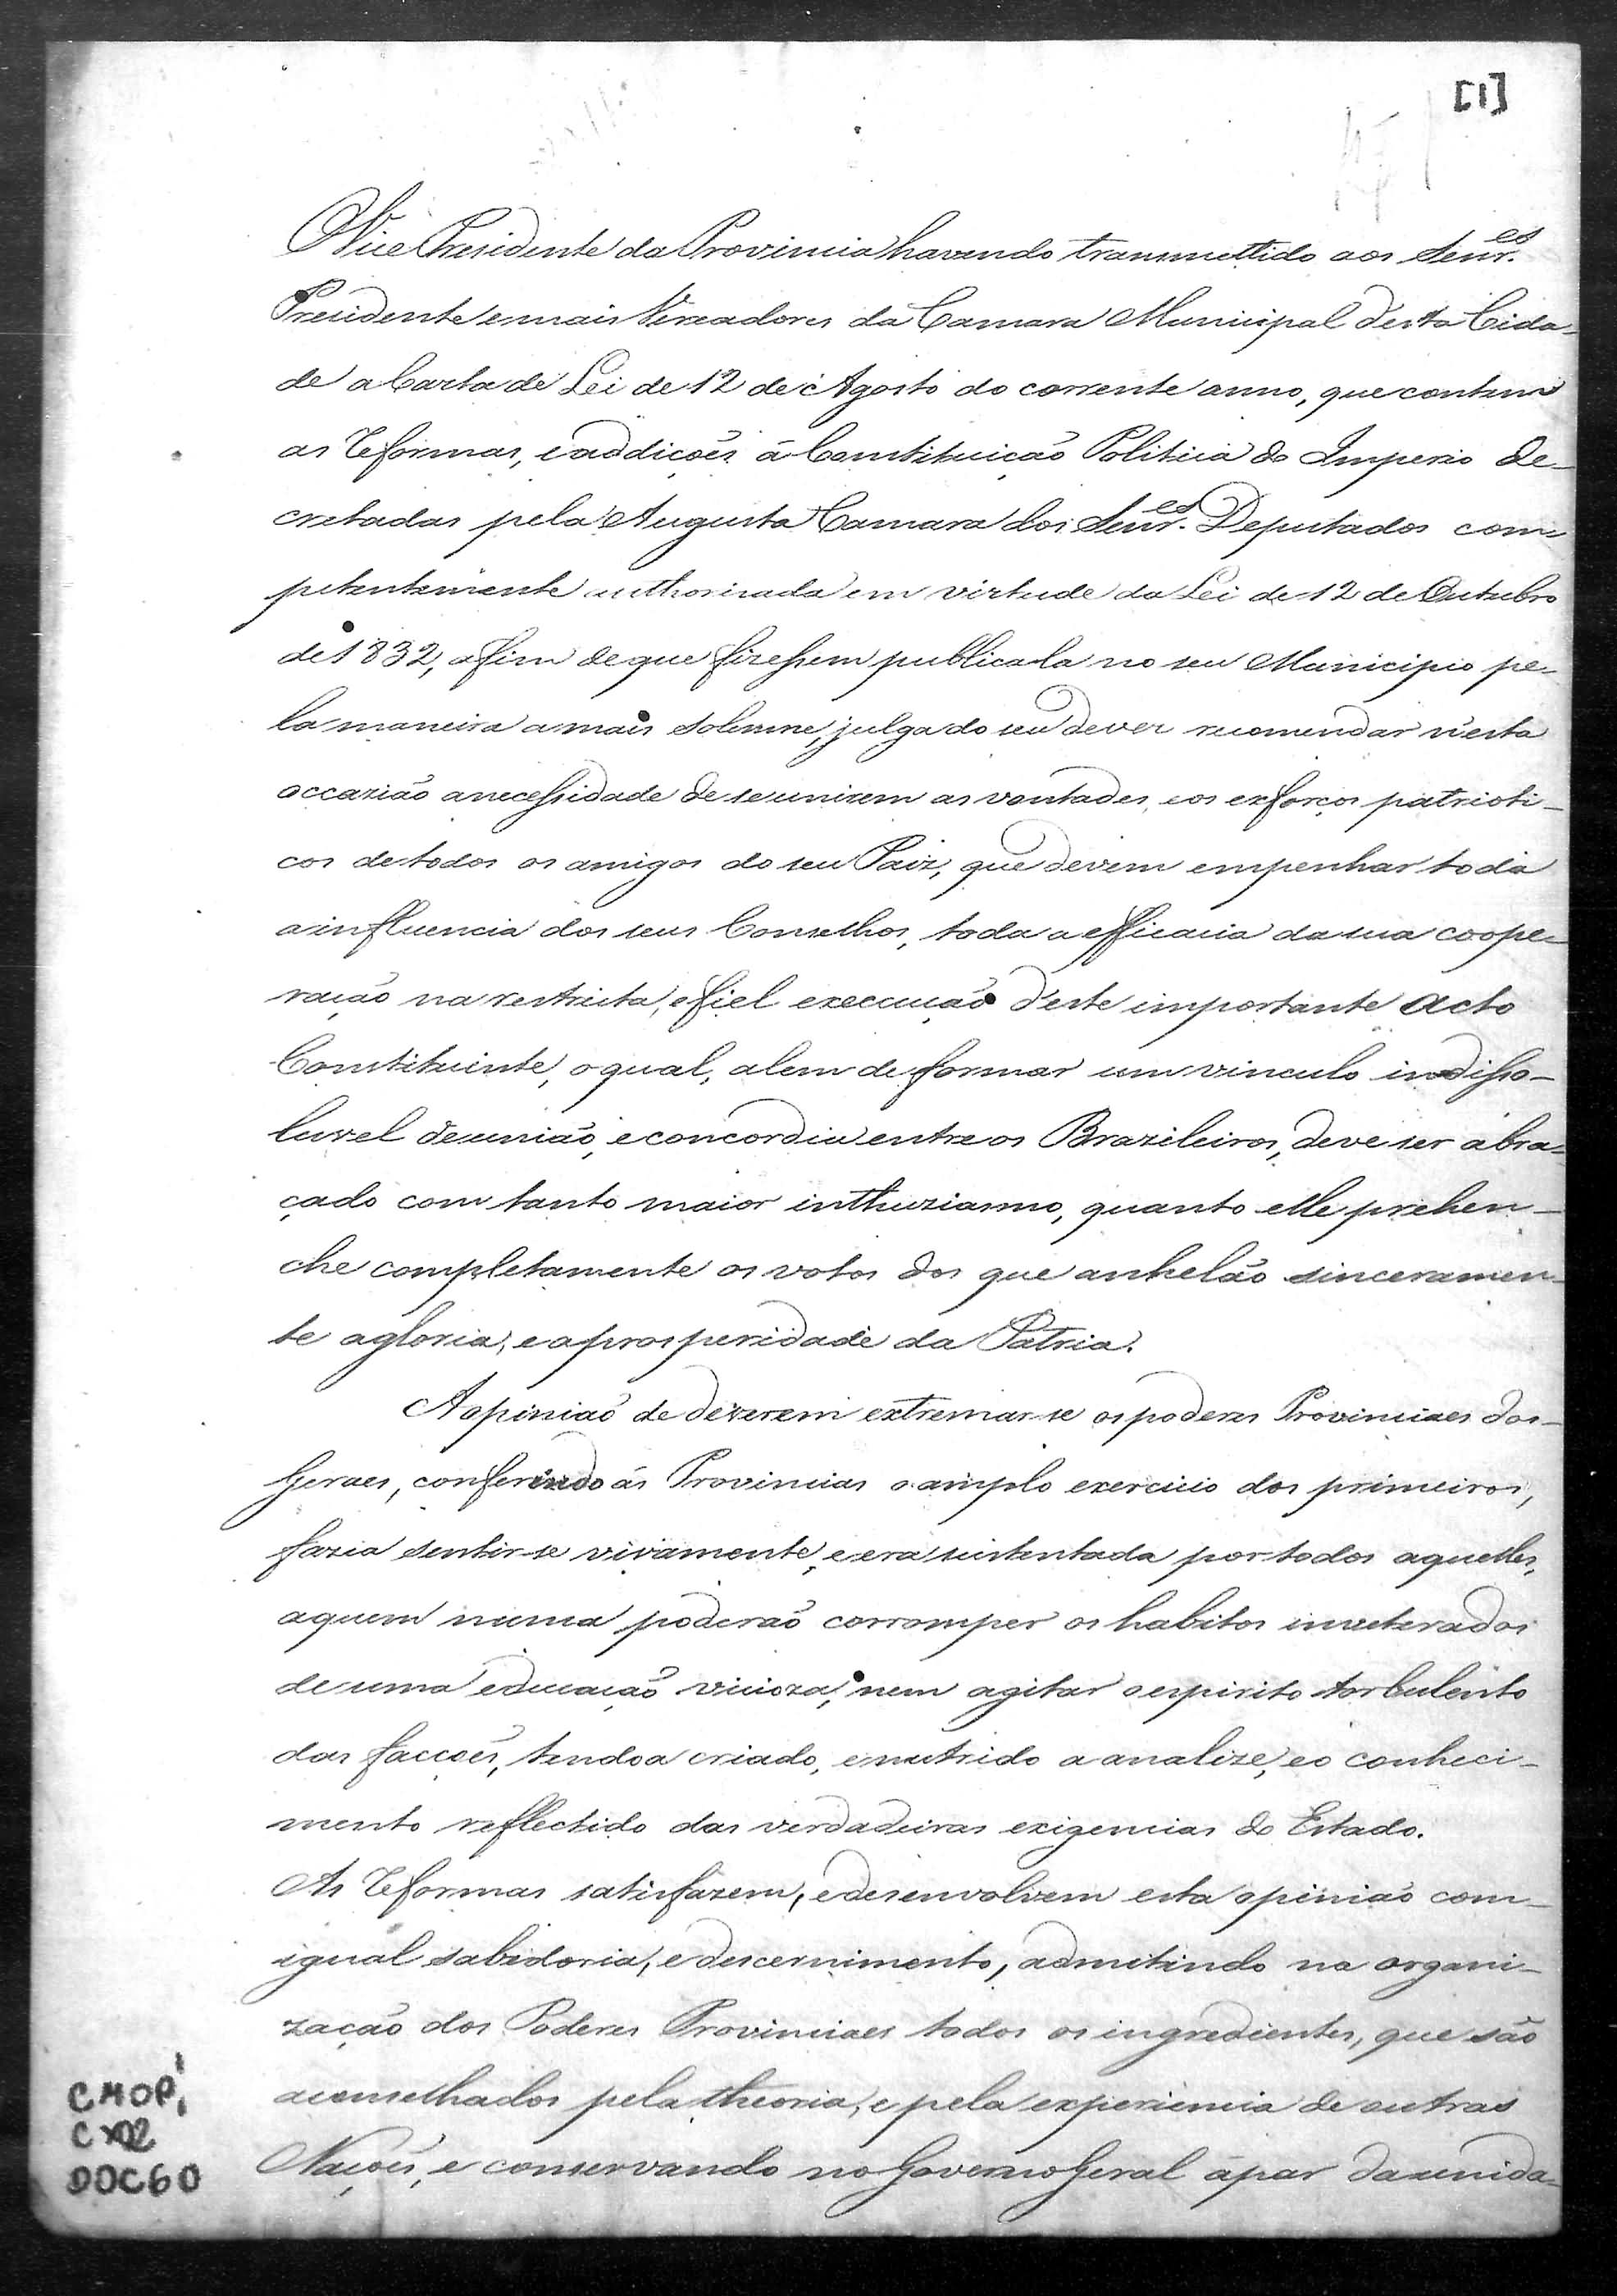 [1]
O Vice Presidente da Provincia havendo transmettido aos Senr.es
Presidente e mais Vereadores da Camara Municipal desta Cida-
de a Carta de Lei de 12 de Agosto do corrente anno, que contem
as Reformas, e addições á Constituição Politica do Imperio de-
cretadas pela Augusta Camara dos Senr.es Deputados com-
petentemente authorisada em virtude da Lei de 12 de Outubro
de 1832, a fim de que fizessem publicala no seu Municipio pe-
la maneira a mais solemne, julga do seu dever recomendar n'esta
occazião a necessidade de se unirem as vontades, e os exforços patrioti-
cos de todos os amigos do seu Paiz, que devem empenhar toda
a influencia dos seus Conselhos, toda a efficacia da sua coope-
ração na restricta, e fiel execução d'este importante Acto
Constituinte, o qual, alem de formar um vinculo indisso-
luvel de união, e concordia entre os Brazileiros, deve ser abra-
çado com tanto maior inthuziasmo, quanto elle prehen-
che completamente os votos dos que anhelão sinceramen-
te a gloria, e a prosperidade da Patria.
A opinião de deverem extremar-se os poderes Provinciaes dos
Geraes, conferindo ás Provincias o amplo exercicio dos primeiros,
fazia sentir-se vivamente, e era sustentada por todos aquelles,
a quem nunca poderão corromper os habitos inveterados
de uma educação vicioza, nem agitar o espirito torbulento
das facções, tendo a criado, e nutrido a analize, e o conheci-
mento reflectido das verdadeiras exigencias do Estado.
As Reformas satisfazem, e desenvolvem esta opinião com
igual sabedoria, e descernimento, admitindo na organi-
zação dos Poderes Provinciaes todos os ingredientes, que são
aconselhados pela theoria, e pela experiencia de outras
Nações, e conservando no Governo Geral a par da unida-
CMOP
CX02
DOC60